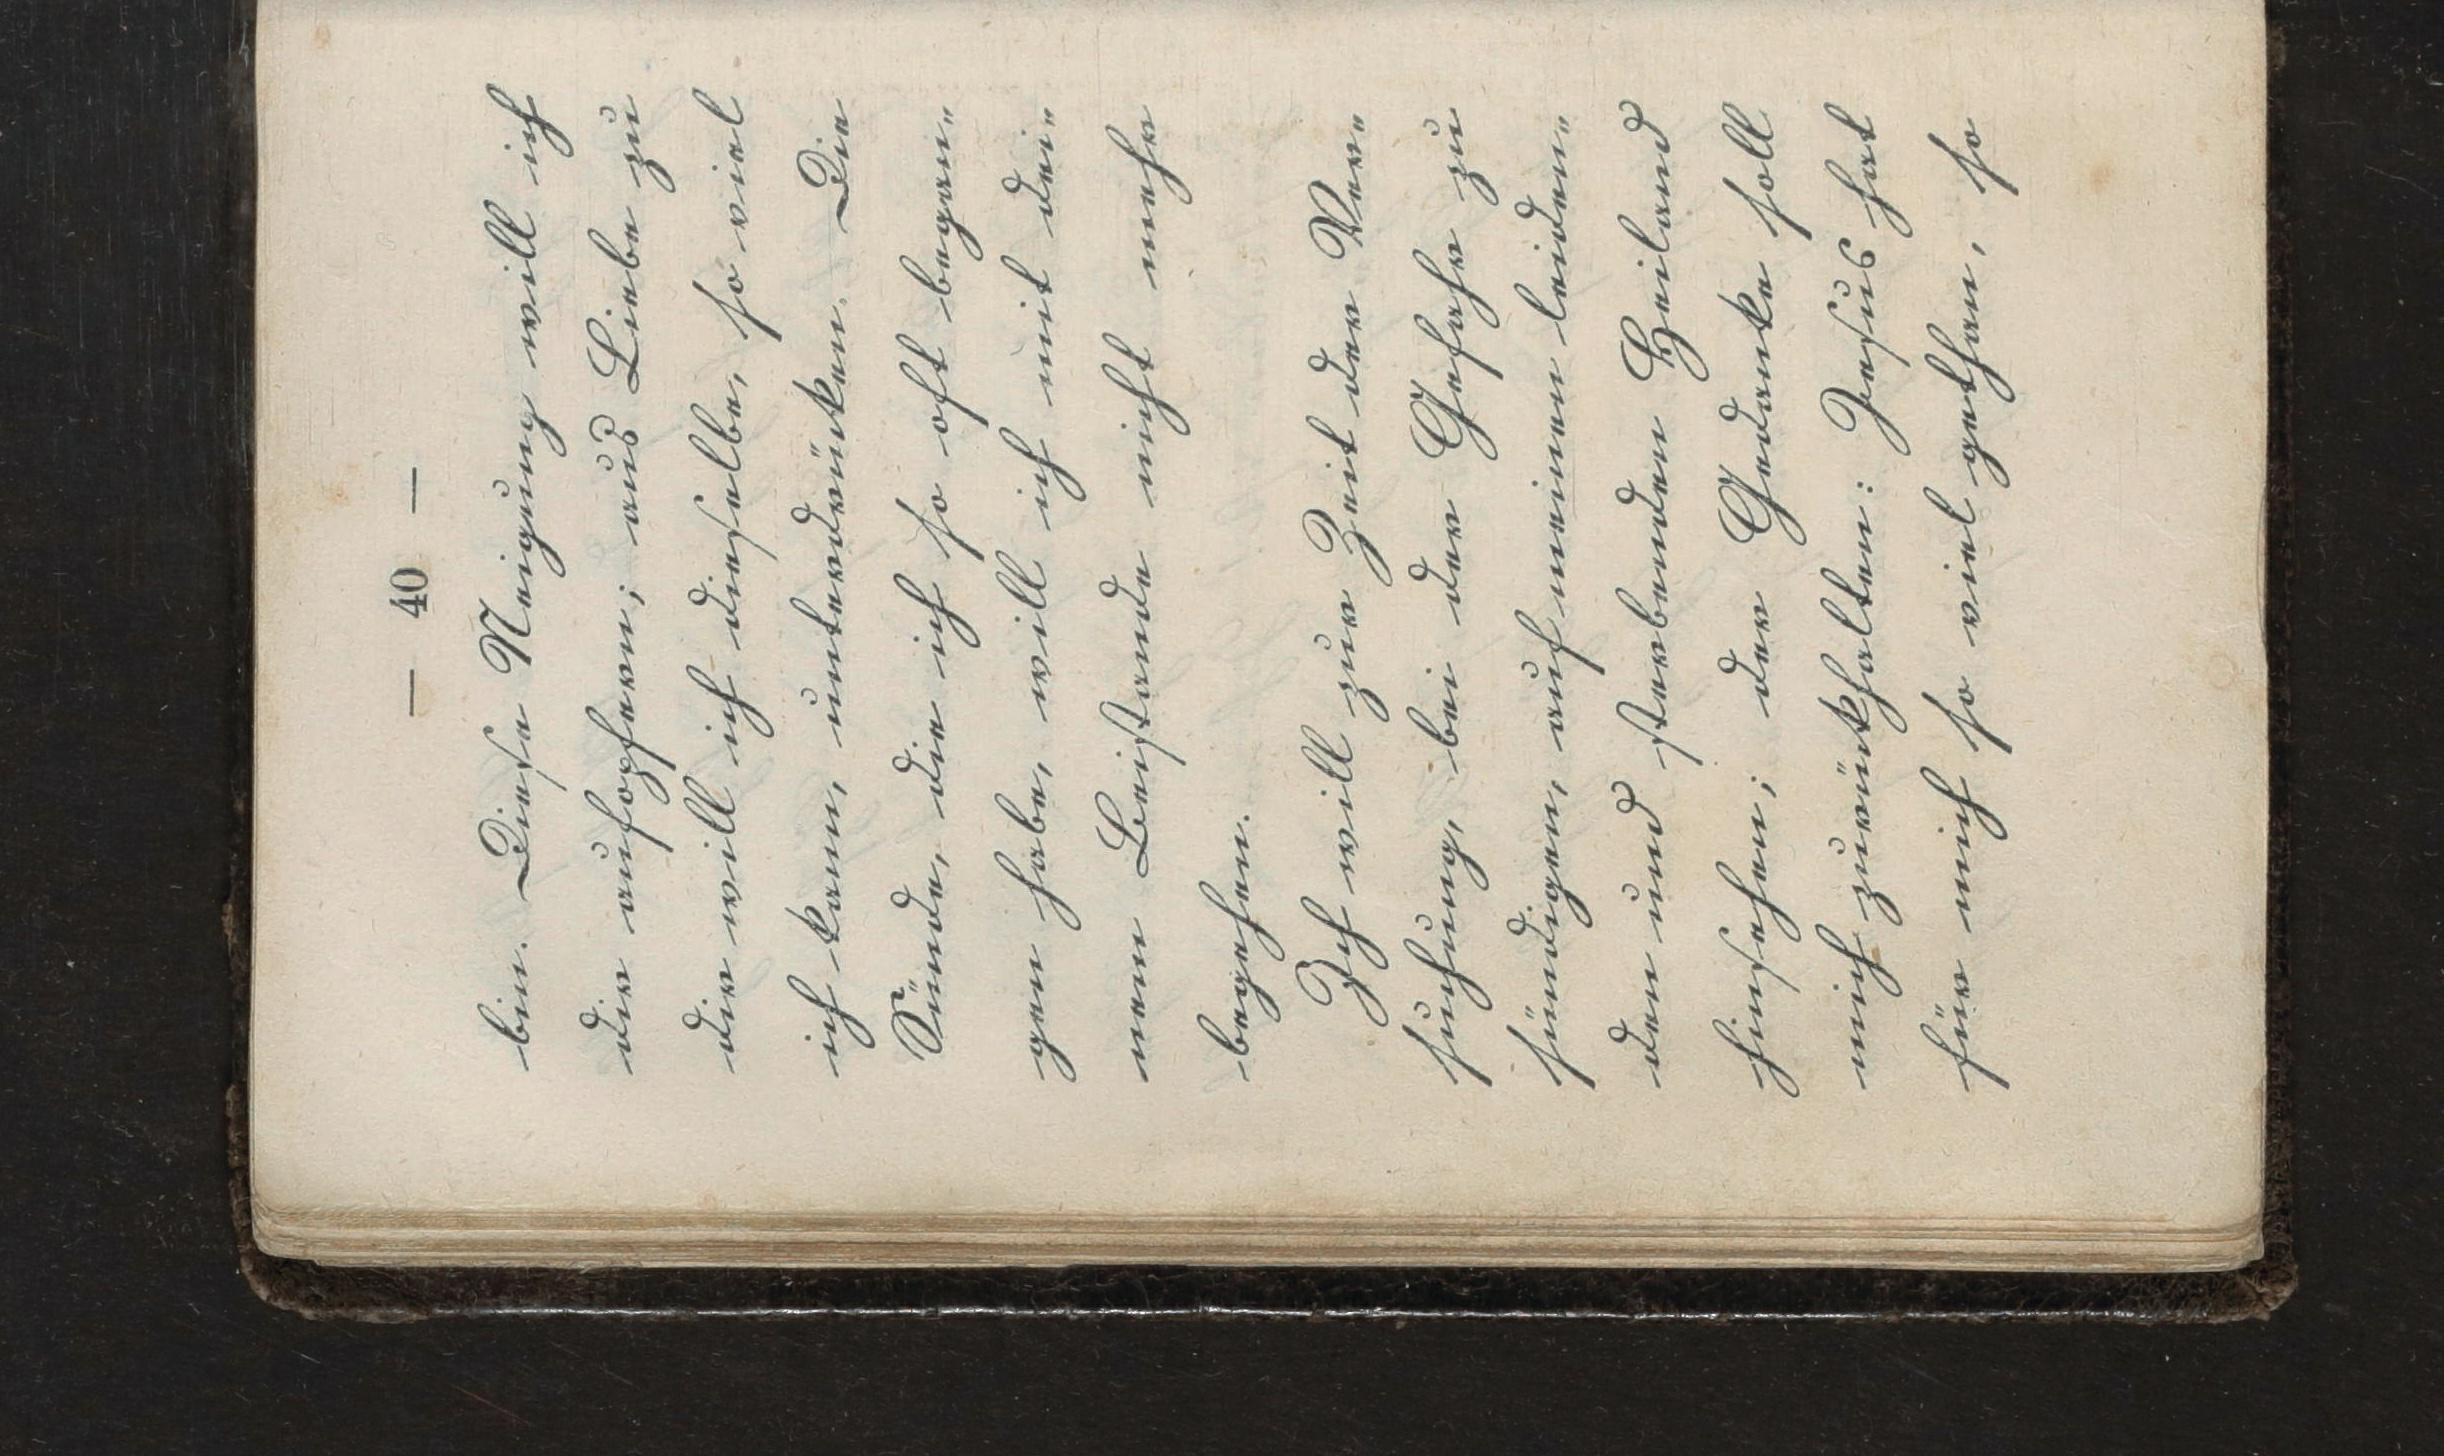 — 40 —
bin. Diese Neigung will ich
dir aufopfern; aus Liebe zu
dir will ich dieselbe, so viel
ich kann, unterdrücken. Die
Sünde, die ich so oft began-
gen habe, will ich mit dei-
nem Beistande nicht mehr
begehen.
Ich will zur Zeit der Ver-
suchung, bei der Gefahr zu
sündigen, auf meinen leiden-
den und sterbenden Heiland
hinsehen; der Gedanke soll
mich zurückhalten: Jesus hat
für mich so viel gethan, so